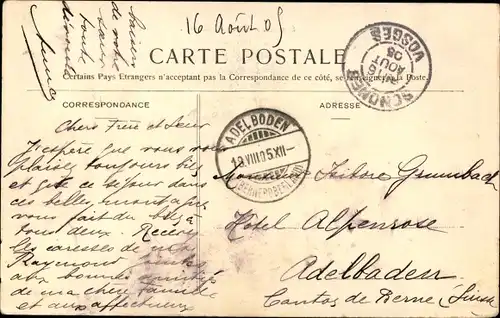 16 Août 05
CARTE POSTALE
Certains Pays Etrangers n'acceptant pas la Correspondance de ce côté, se renseigner à la Poste.
CORRESPONDANCE
ADRESSE
SENONES
16
AOUT
05
VOSGES
ADELBODEN
18.VIII.05.XII-
(BERNEROBERLAND)
Chers Frère et Sœur
J'espère que vous vous
plaisez toujours bien
et que ce séjour dans
ces belles montagnes
vous fait du bien à
tous deux. Recevez
les caresses de
Raymond
aux bonnes amitiés
de ma chère famille
et aux affectueux
de votre
sœur
toute
dévouée
Monsieur Isidore Grumbach
Hôtel Alpenrose
Adelbaden
Canton de Berne (Suisse)